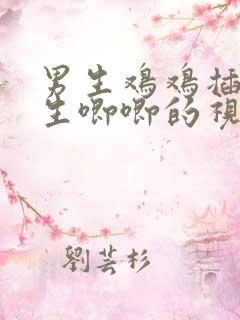 男生鸡鸡插
生唧唧的視
劉芸杉